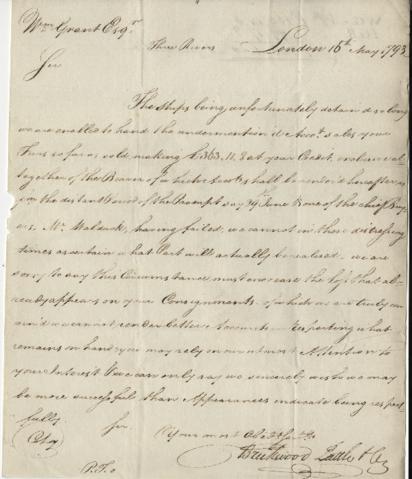 Wm Grant Esqr.
Three Rivers London 15th May 1793
Sir
The Ships being unfortunately detain'd so long
we are enabled to hand the undermention'd Accot. sales your
Furs so far as sold, making £363.11.8 at your Credit,
together of the Beaver of which shall be render'd hereafter
in the distant Period of the Prompt say 29 June & one of the chief Buy
ers Mr. having failed, we cannot in these distressing
times ascertain what Part will actually be realised. we are
sorry to say this Circumstance must encrease the loss that al-
ready appears on your Consignments of which we are truly con
cern'd we cannot render better Accounts. Respecting what
remains on hand, you may rely on our utmost Attention to
your Interest & we can only say we sincerely wish we may
be more successful than Appearances indicate being respect
fully Sir
Your most Obedt. Servts.
Copy Brickwood Pattle & Co
P.T.O